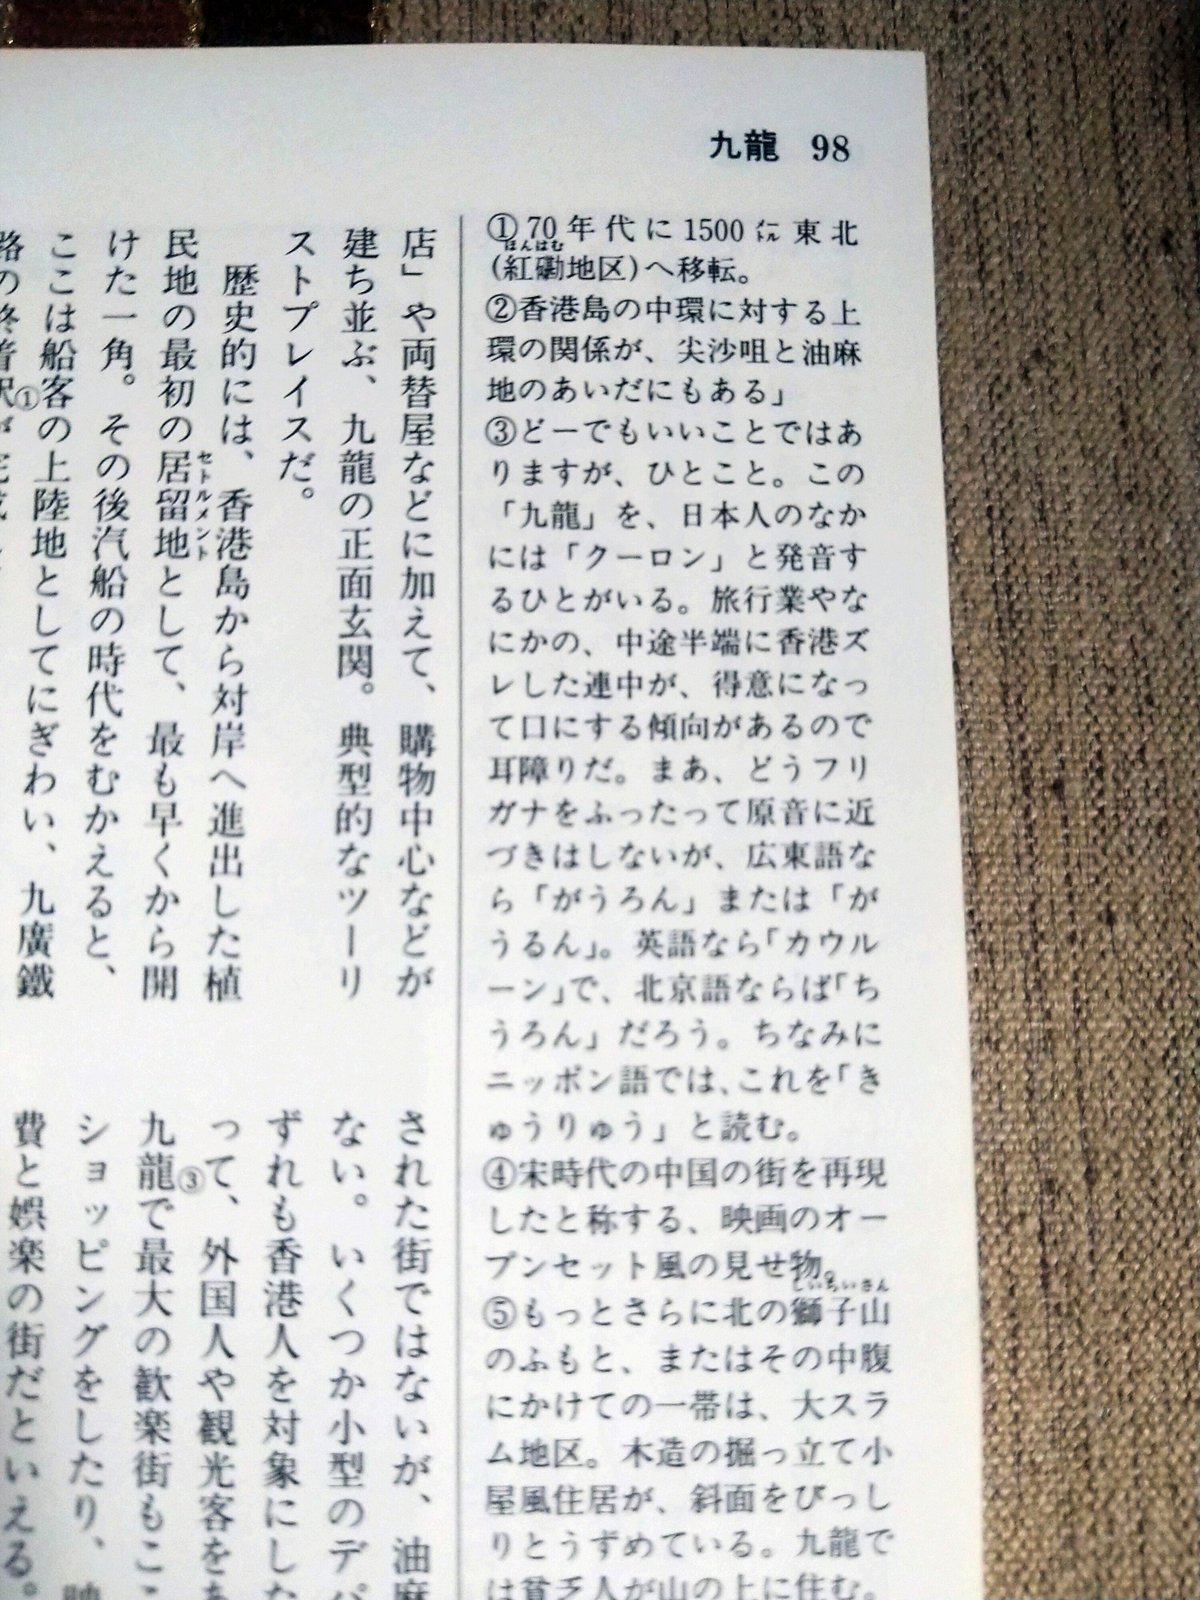 九龍 98
①70年代に1500メートル東北
ほんはむ
(紅磡地区)へ移転。
②香港島の中環に対する上
環の関係が、尖沙咀と油麻
地のあいだにもある」
③どーでもいいことではあ
りますが、ひとこと。この
「九龍」を、日本人のなか
には「クーロン」と発音す
るひとがいる。旅行業やな
にかの、中途半端に香港ズ
レした連中が、得意になっ
て口にする傾向があるので
耳障りだ。まあ、どうフリ
ガナをふったって原音に近
づきはしないが、広東語な
ら「がうろん」または「が
うるん」。英語なら「カウル
ーン」で、北京語ならば「ち
うろん」だろう。ちなみに
ニッポン語では、これを「き
ゅうりゅう」と読む。
④宋時代の中国の街を再現
したと称する、映画のオー
プンセット風の見せ物。
しいちいさん
⑤もっとさらに北の獅子山
のふもと、またはその中腹
にかけての一帯は、大スラ
ム地区。木造の掘っ立て小
屋風住居が、斜面をびっし
りとうずめている。九龍で
は貧乏人が山の上に住む。
店」や両替屋などに加えて、購物中心などが
建ち並ぶ、九龍の正面玄関。典型的なツーリ
ストプレイスだ。
歴史的には、香港島から対岸へ進出した植
民地の最初の居留地として、最も早くから開
セトルメント
けた一角。その後汽船の時代をむかえると、
ここは船客の上陸地としてにぎわい、九廣鐵
①
路の終着駅が完成
された街ではないが、油麻
ない。いくつか小型のデパ
ずれも香港人を対象にした
って、外国人や観光客をあ
九龍で最大の歓楽街もここ
③
ションピングをしたり、映
費と娯楽の街だといえる。